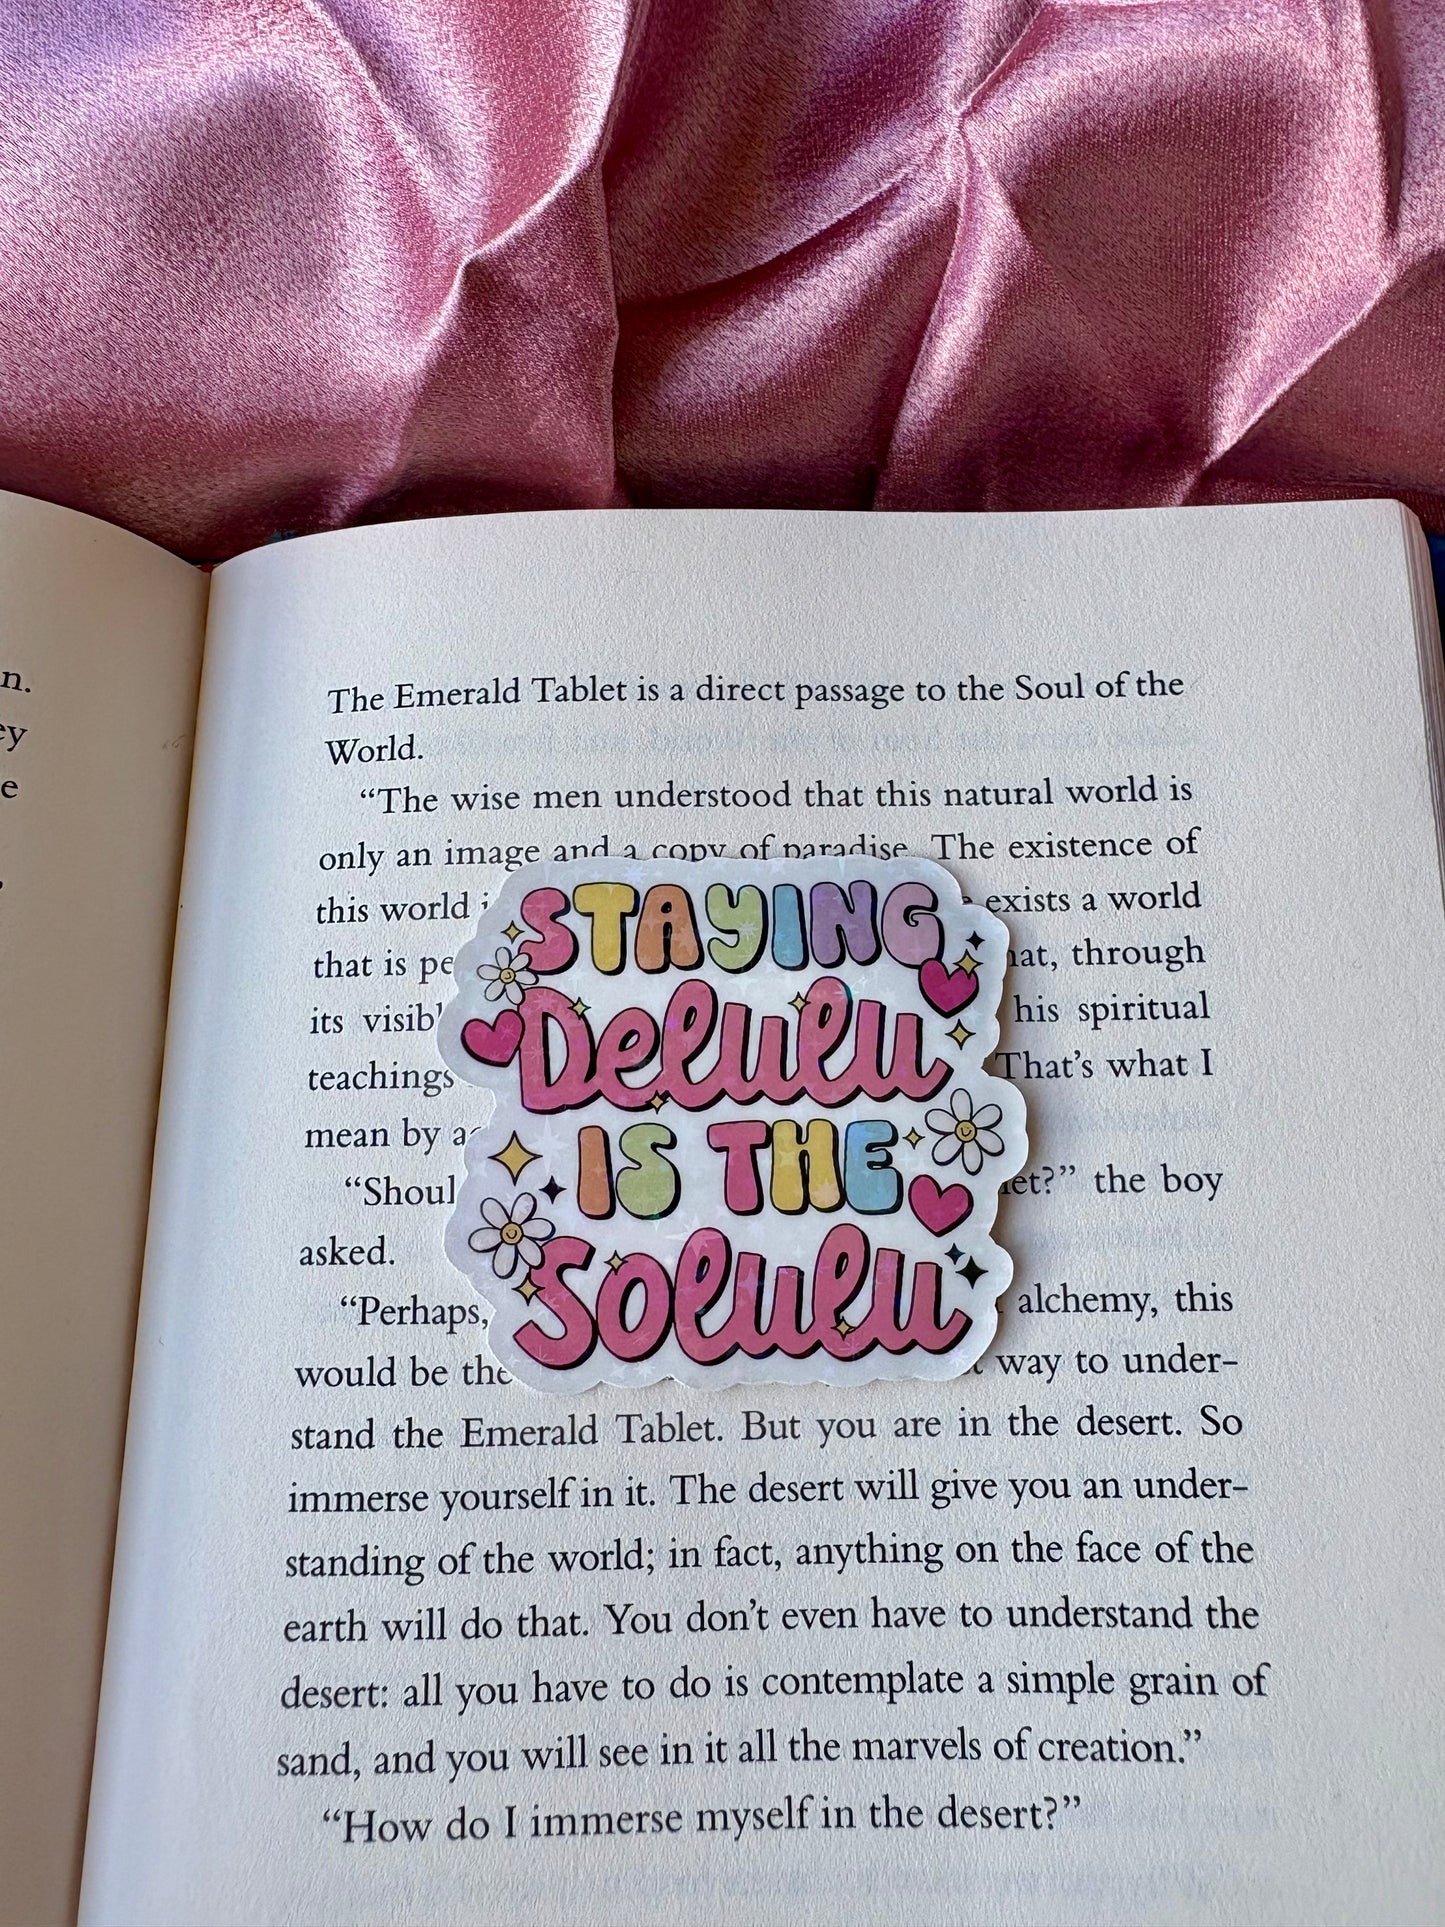 n.
ey
e
The Emerald Tablet is a direct passage to the Soul of the
World.
“The wise men understood that this natural world is
only an image and a copy of paradise. The existence of
this world exists a world
that is through
its his spiritual
teachings That’s what I
mean by
the boy
asked.
“Perhaps, alchemy, this
would be the way to under-
stand the Emerald Tablet. But you are in the desert. So
immerse yourself in it. The desert will give you an under-
standing of the world; in fact, anything on the face of the
earth will do that. You don’t even have to understand the
desert: all you have to do is contemplate a simple grain of
sand, and you will see in it all the marvels of creation.”
“How do I immerse myself in the desert?”
STAYING
Delulu
IS THE
Solulu